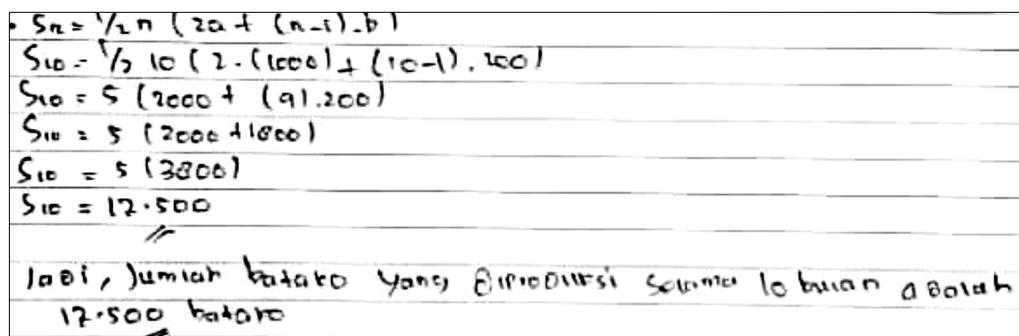 • Sn = 1/2 n (2a + (n-1).b)
S10 = 1/2 10 (2.(1000) + (10-1).200)
S10 = 5 (2000 + (9).200)
S10 = 5 (2000 + 1800)
S10 = 5 (3800)
S10 = 17.500
Jadi, Jumlah batako yang diproduksi selama 10 bulan adalah
17.500 batako